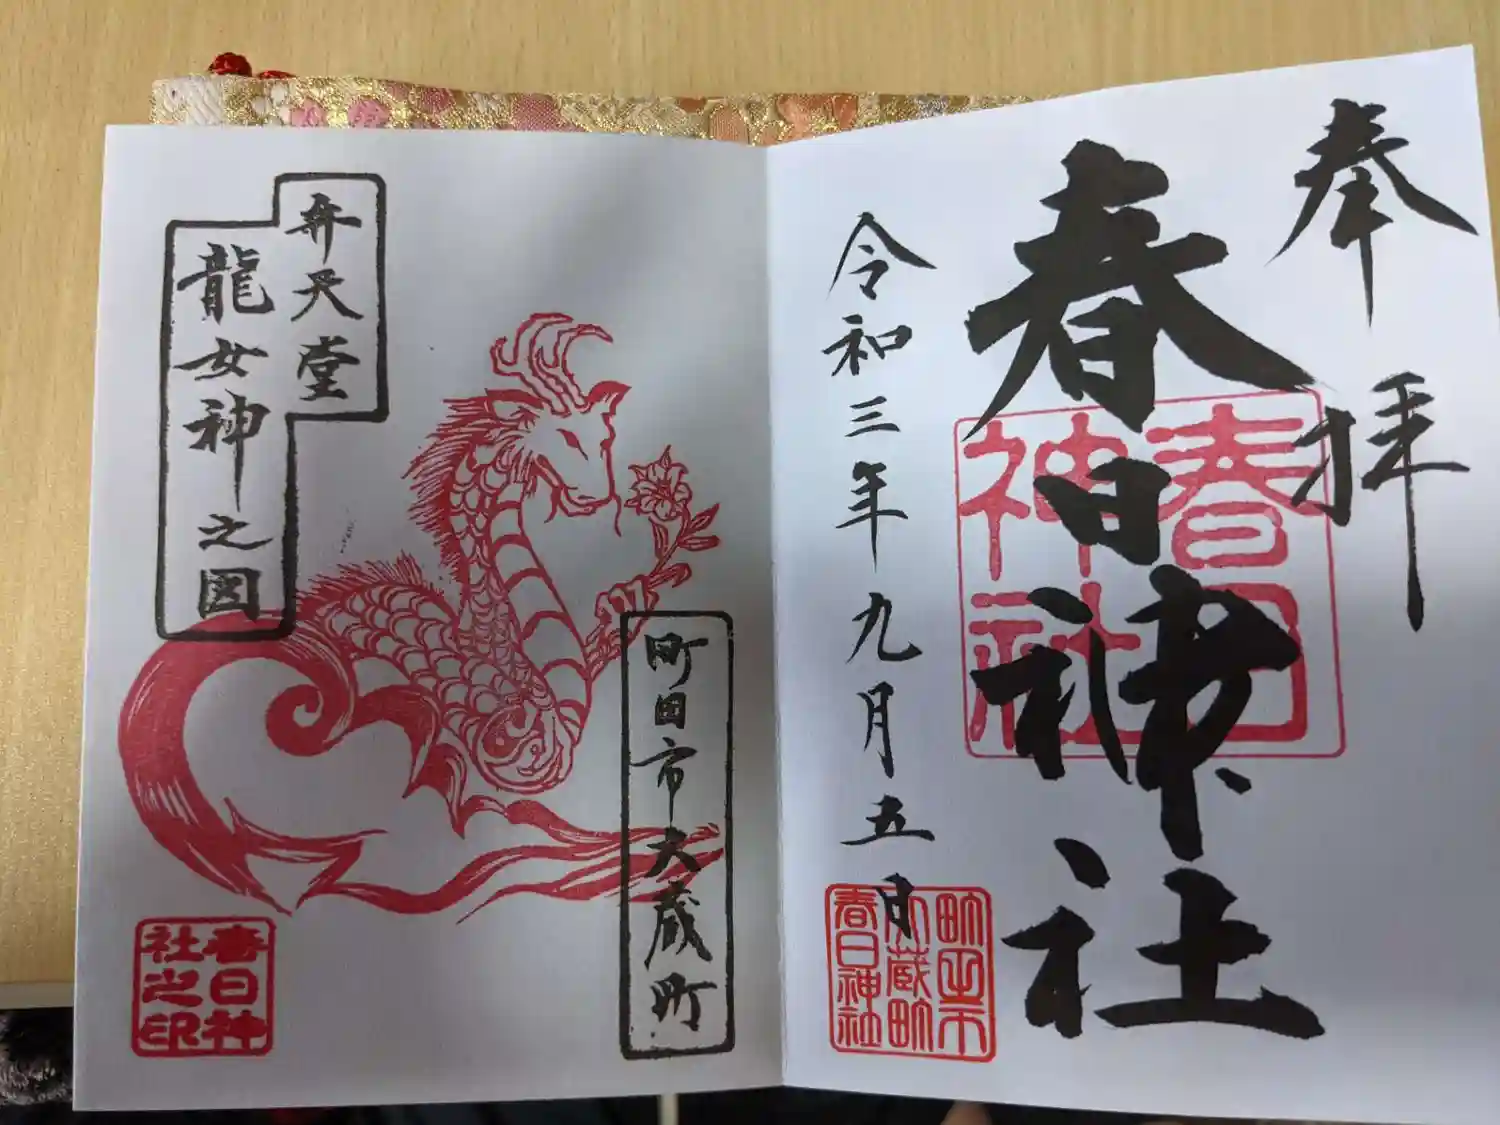 奉拝
春日神社
春日神社
令和三年九月五日
町田市
大蔵町
春日神社
弁天堂
龍女神之図
町田市大蔵町
春日神
社之印